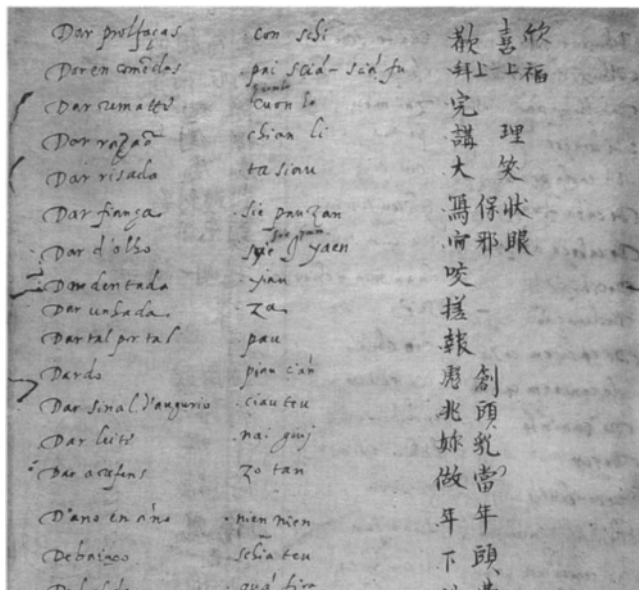 Dar prolfaças con schi 歡喜欣
Dar en comẽdas pai sciá-sciá fu 拜上上福
Dar remattẽ cuon lo 完
Dar razaõ chian li 講理
Dar risada ta siau 大笑
Dar fiança sie pau zan 寫保狀
Dar d'olho yaen 邪眼
Dar dentada yiau 咬
Dar unhada za 搓
Dar tal por tal pau 報
Dardo pian 創
Dar sinal d'augurio ciau teu 兆頭
Dar leite nai 妳乳
Dar arefens zo tan 做當
D'ano en ano nien nien 年年
Debaixo schia teu 下頭